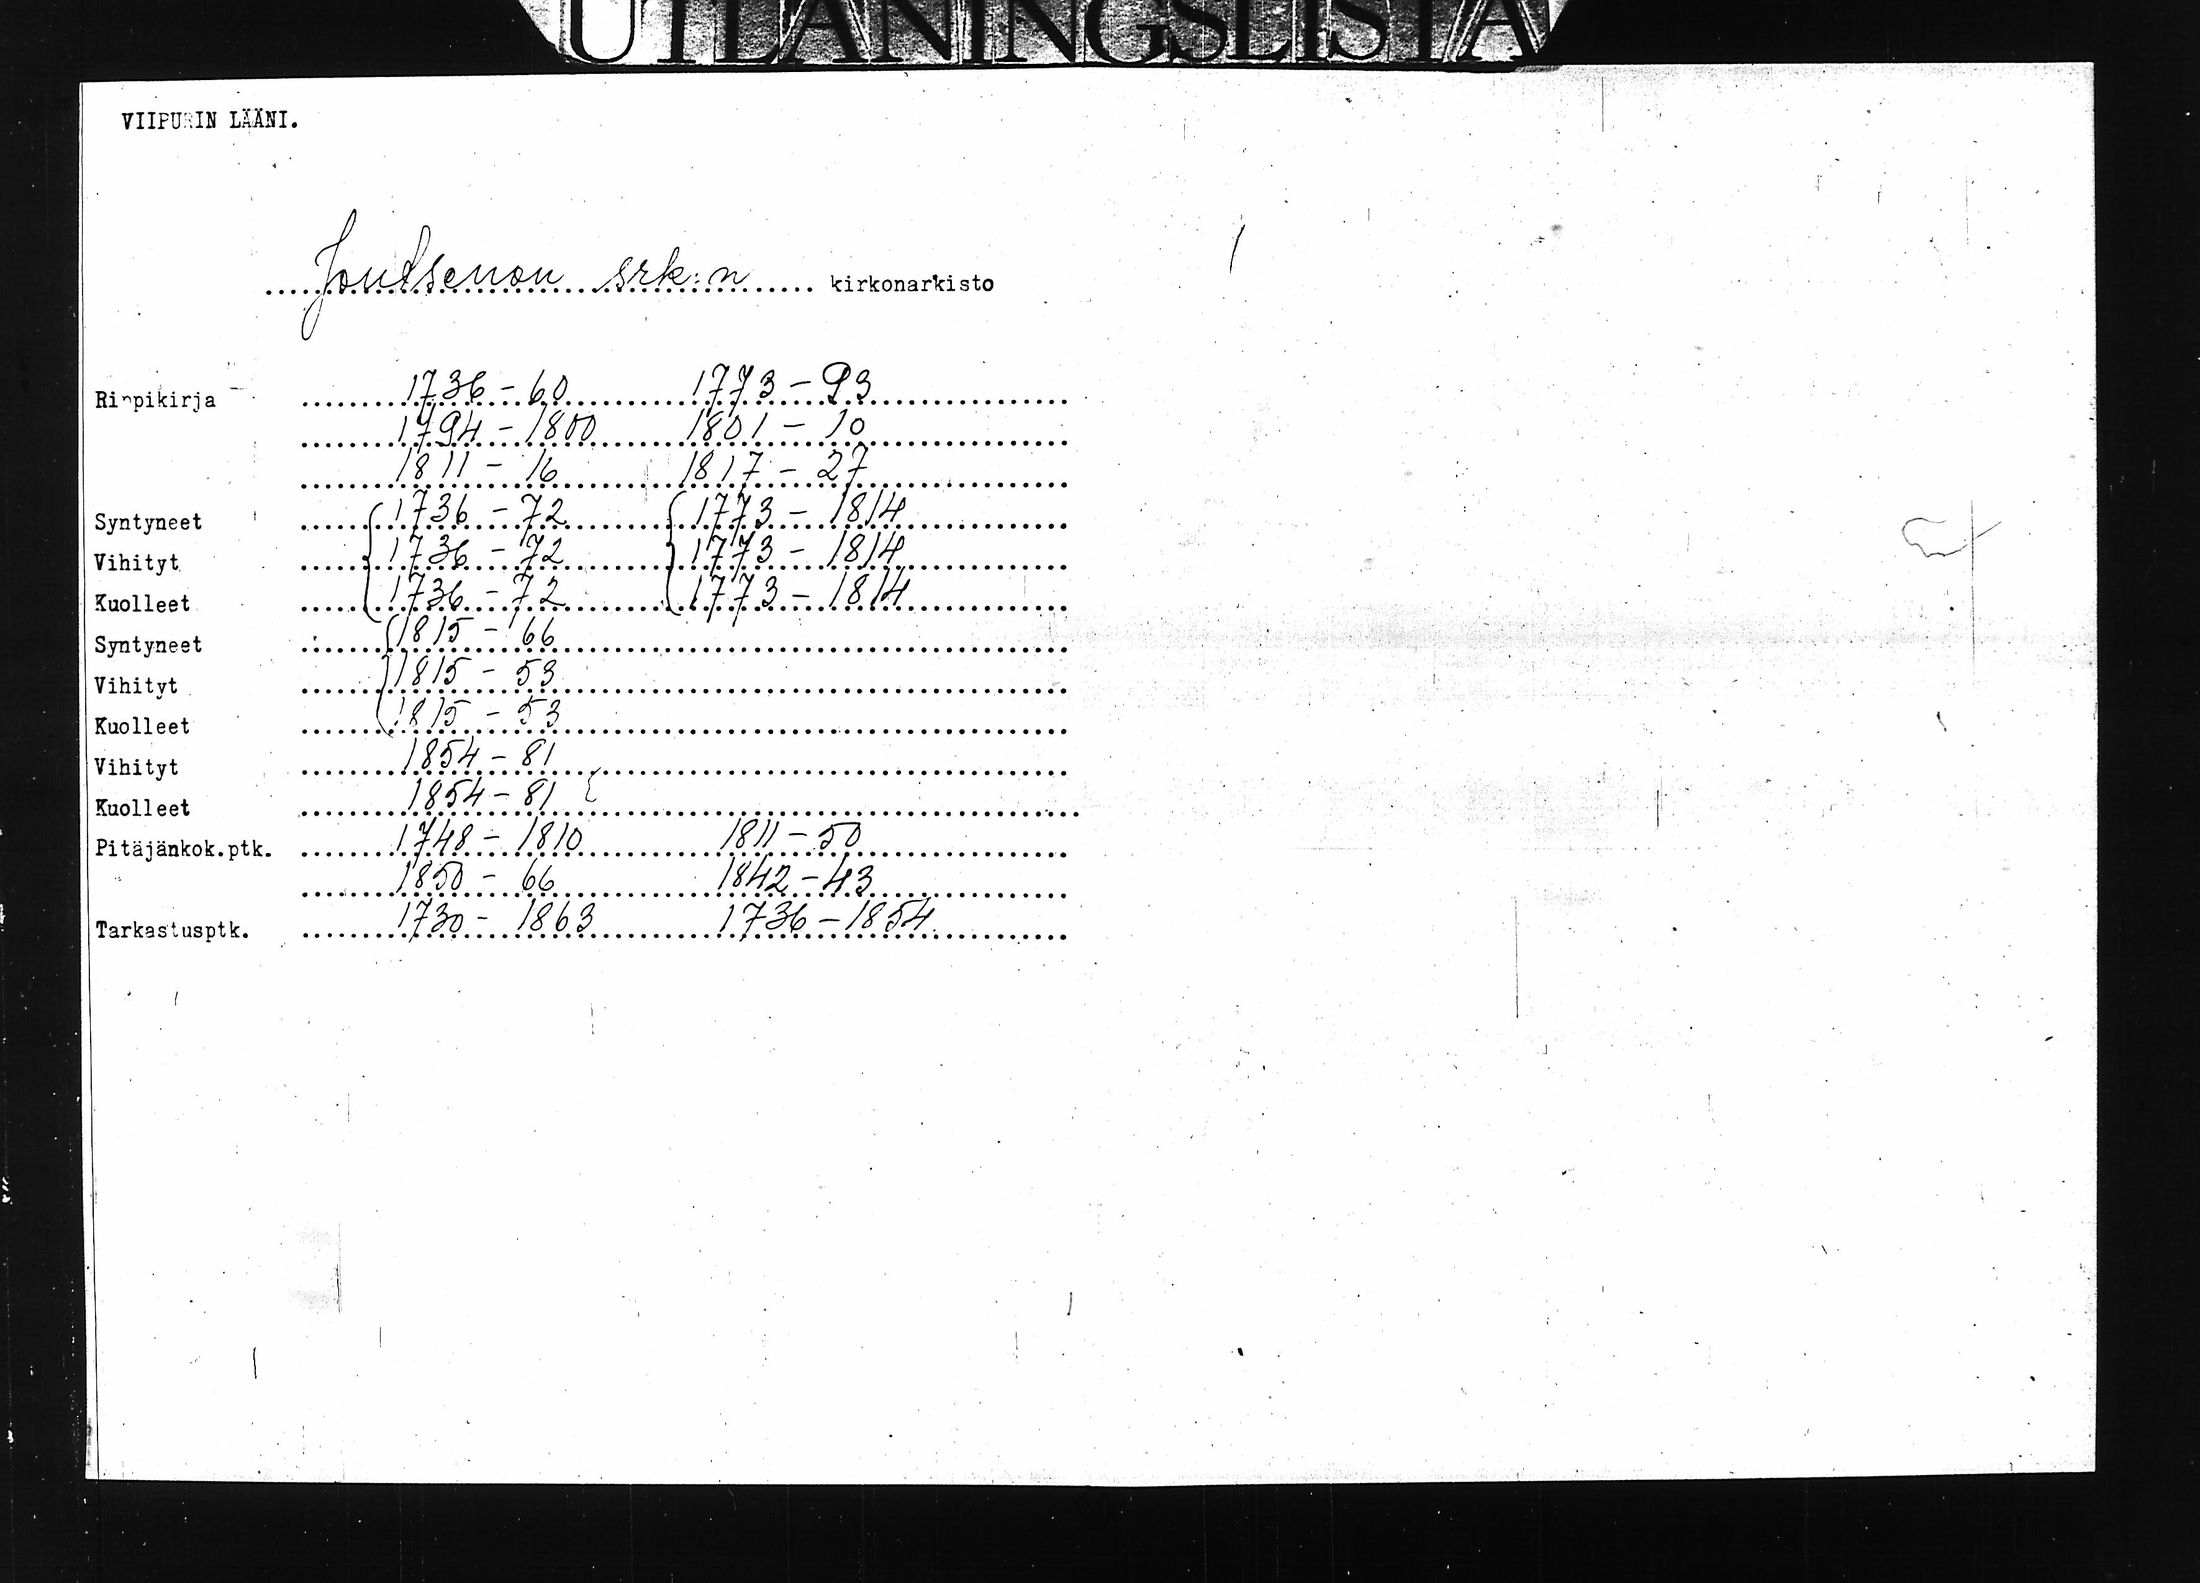 UTLÅNINGSLISTA
VIIPURIN LÄÄNI.
Joutsenon srk:n kirkonarkisto
Rippikirja 1736-60 1773-93
1794-1800 1801-10
1811-16 1817-27
Syntyneet 1736-72 1773-1814
Vihityt 1736-72 1773-1814
Kuolleet 1736-72 1773-1814
Syntyneet 1815-66
Vihityt 1815-53
Kuolleet 1815-53
Vihityt 1854-81
Kuolleet 1854-81
Pitäjänkok.ptk. 1748-1810 1811-50
1850-66 1842-43
Tarkastusptk. 1730-1863 1736-1854